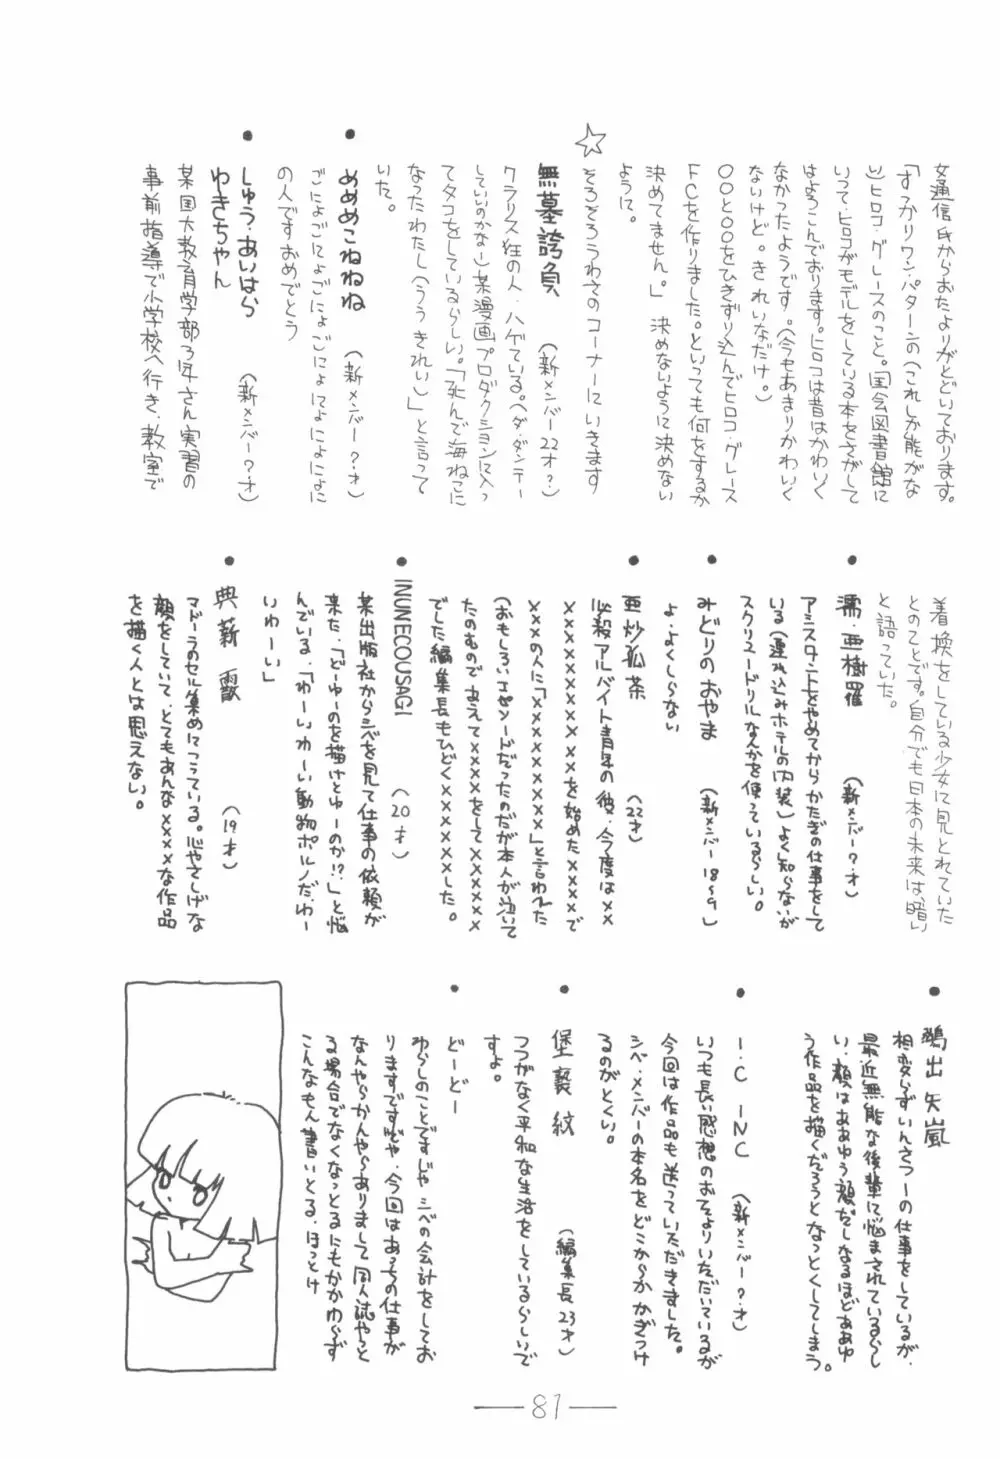 女通信氏からおたよりがとどいております。
「すっかりワン・パターンの（これしか能がな
い）ヒロコ・グレースのこと。国会図書館に
いって、ヒロコがモデルをしている本をさがして
はよろこんでおります。ヒロコは昔はかわいく
なかったようです。（今もあまりかわいく
ないけど。きれいなだけ。）
〇〇と〇〇をひきずり込んでヒロコ・グレース
FCを作りました。といっても何をするか
決めてません。」決めないように決めない
ように。
☆そろそろうわさのコーナーにいきます
無墓誇負（新メンバー22才？）
クラリス狂の人、ハゲている。（ダ・ダンテー
していいのかな）某漫画プロダクションに入っ
てタコをしているらしい。「死んで海ねこに
なったわたし（ううきれい）」と言って
いた。
●めめめこねねね（新メンバー？才）
ごにょごにょごにょごにょごにょにょにょにょに
の人ですおめでとう
●しゅう・あいはら（新メンバー？才）
わきちゃん
某国大教育学部3年さん実習の
事前指導で小学校へ行き、教室で
着換をしている少女に見とれていた
とのことです。自分でも日本の未来は暗い
と語っていた。
●濡・亜樹羅（新メンバー？才）
アシスタントをやめてからかたぎの仕事をして
いる（連れ込みホテルの内装）よく知らないが
スクリュードリルなんかを使っているらしい。
●みどりのおやま（新メンバー18〜9）
よ、よくしらない
●亜炒狐茶（22才）
必殺アルバイト青年の彼、今度は××
××××××××を始めた××××で
××××の人に「××××××××」と言われた
（おもしろいエピソードだったのだが本人が泣いて
たのむので、あえて××××をして×××××
でした編集長もひどく××××××××した。
●INUNECOUSAGI（20才）
某出版社からシベを見て仕事の依頼が
来た、「どーゆーのを描けとゆーのか!?」と悩
んでいる、「わーいわーい動物ポルノだ、わー
いわーい」
●典薪霞（19才）
マドーラのセル集めにこっている。心やさしげな
顔をしていて、とてもあんな××××な作品
を描く人とは思えない。
●鵺出矢嵐
相変いずいんさつーの仕事をしているが、
最近無能な後輩に悩まされているらし
い、顔はああゆう顔だしなるほどああゆ
う作品を描くだろうとなっとくしてしまう。
●I・C INC（新メンバー？才）
いつも長い感想のおたよりいただいているが
今回は作品も送っていただきました。
シベ・メンバーの本名をどこからかかぎつけ
るのがとくい。
●堡褻紋（編集長23才）
つつがなく平和な生活をしているらしいで
すよ。
●どーどー
わらしのことですじゃ、シベの会計をしてお
りますですじゃ、今回はあっちの仕事が
なんやらかんやらありまして同人誌やっと
る場合でなくなっとるにもかかわらず
こんなもん書いとる、ほっとけ
—81—